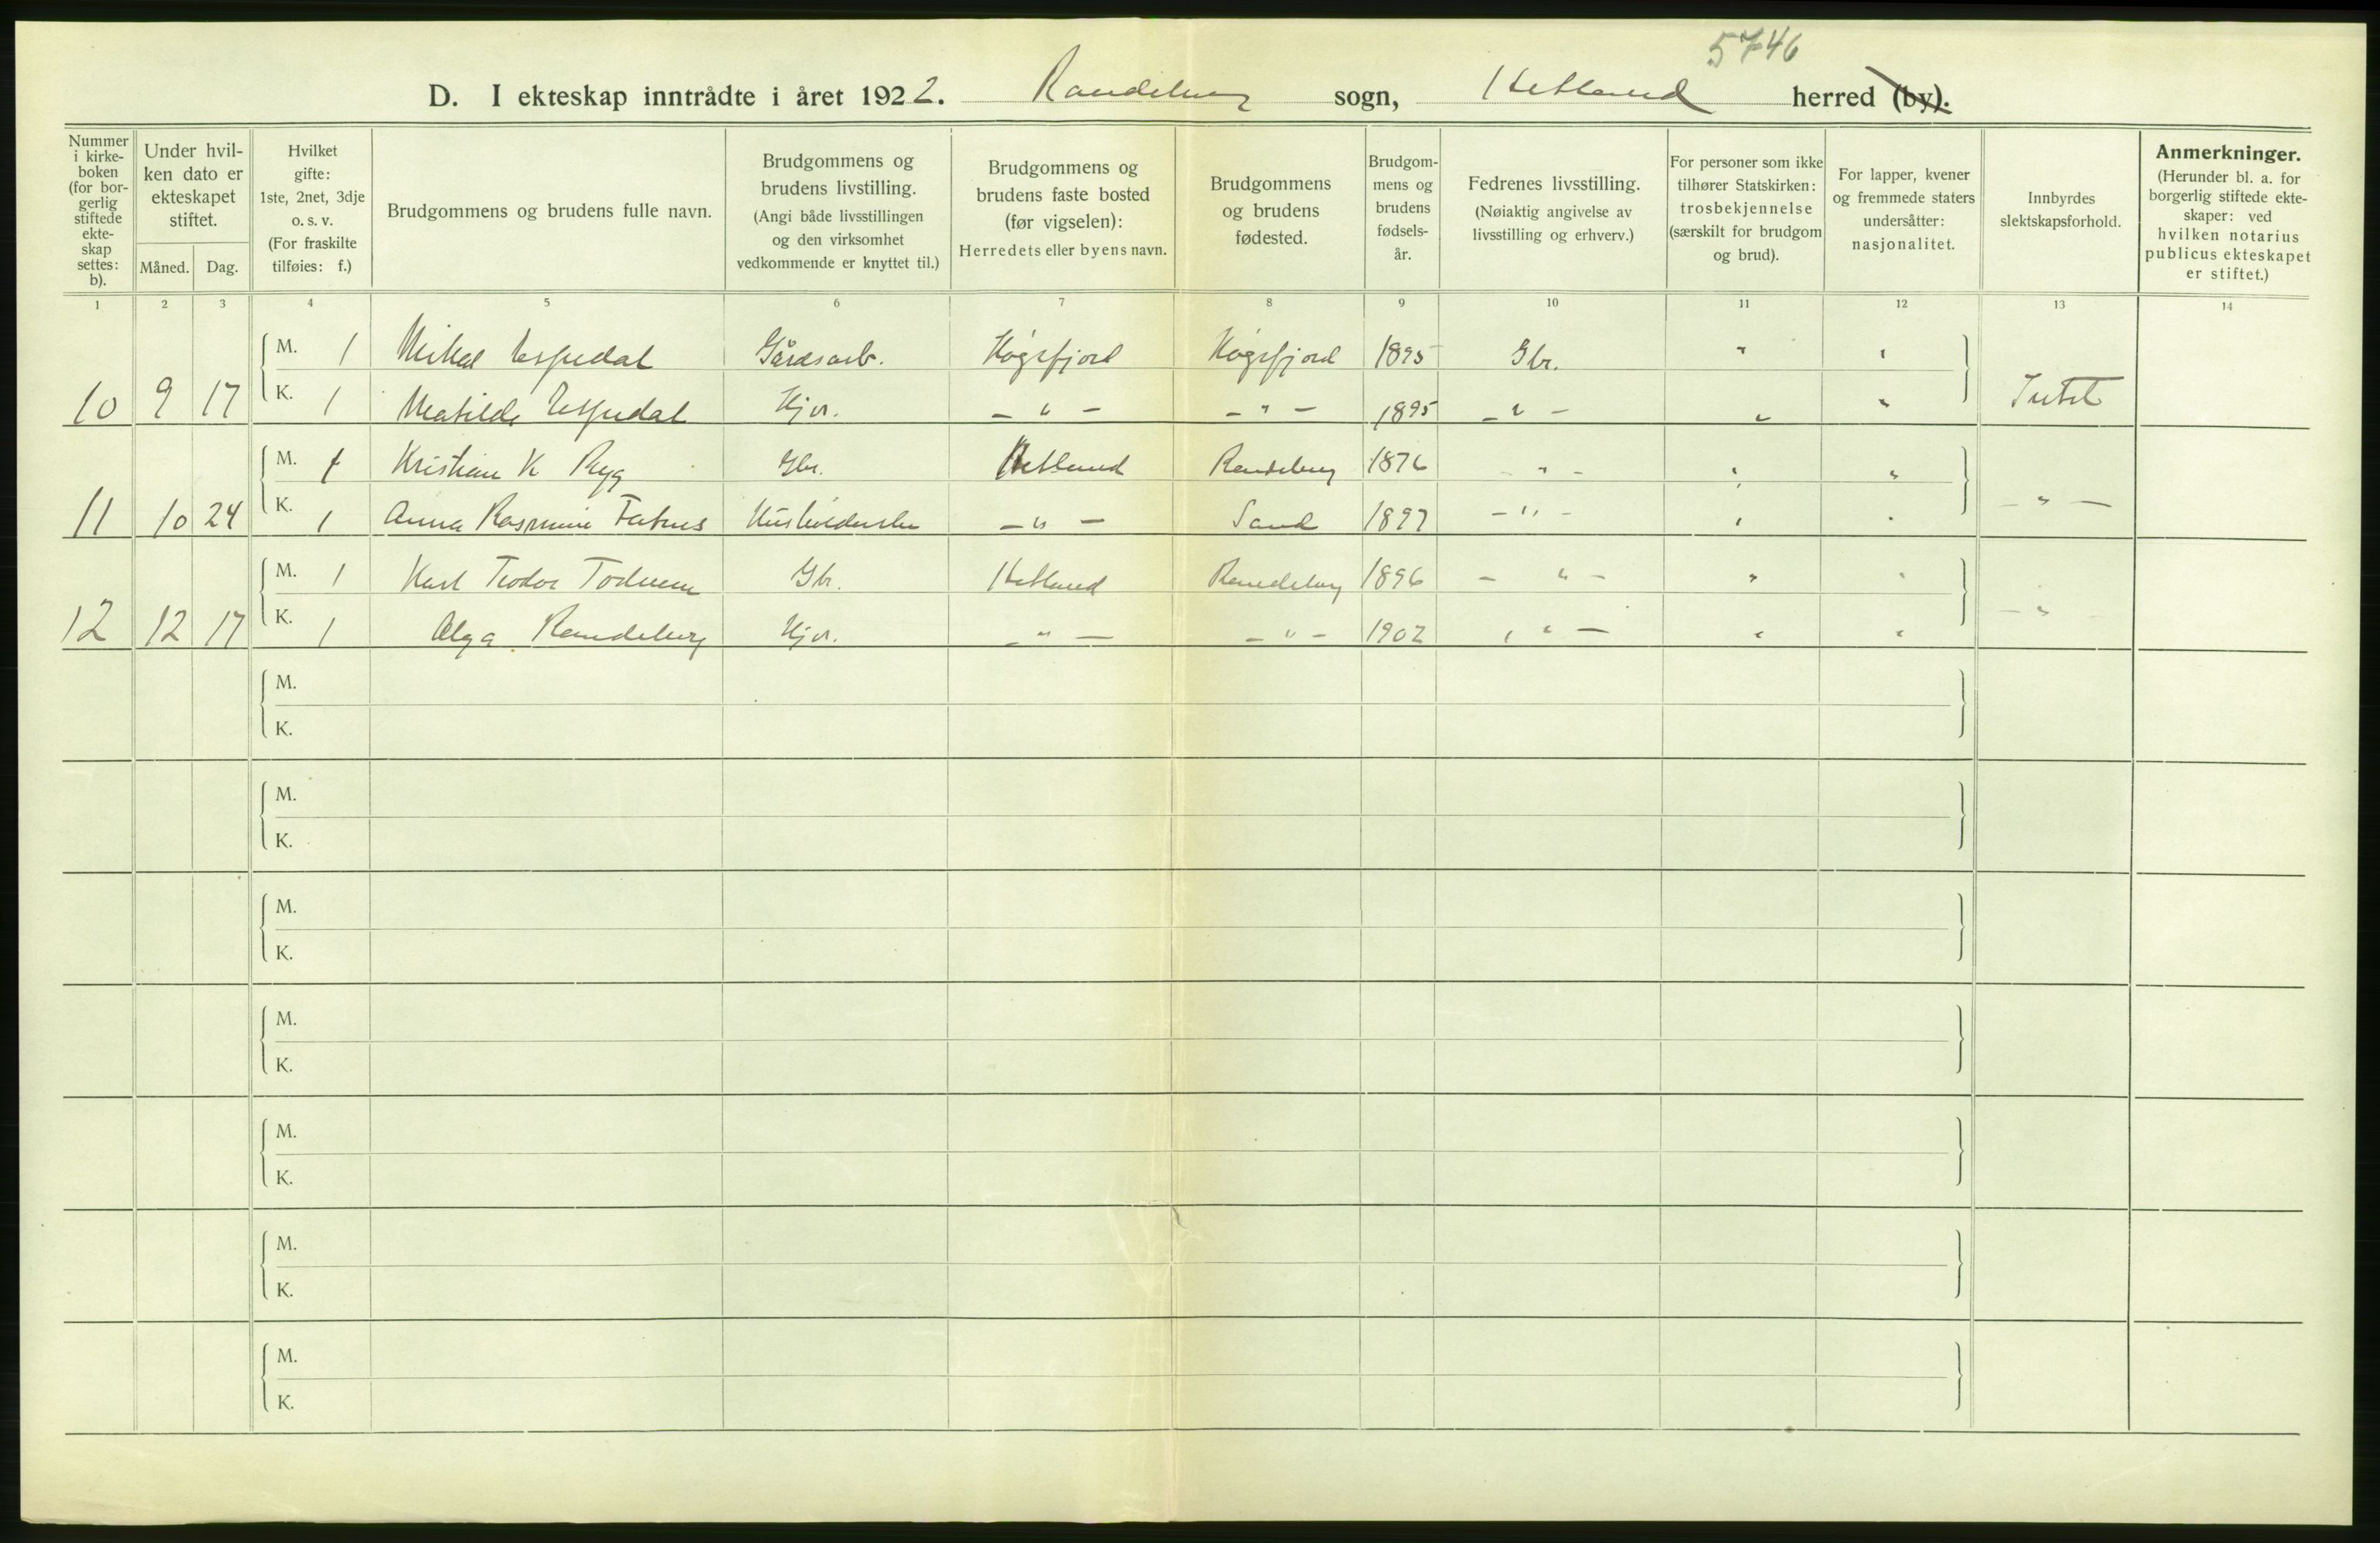 5746
D. I ekteskap inntrådte i året 1922. Randeberg sogn, Hetland herred (by).
Nummer i kirke-boken (for bor-gerlig stiftede ekte-skap settes: b).
Under hvil-ken dato er ekteskapet stiftet.
Måned. Dag.
Hvilket gifte: 1ste, 2net, 3dje o. s. v. (For fraskilte tilføies: f.)
Brudgommens og brudens fulle navn.
Brudgommens og brudens livstilling. (Angi både livsstillingen og den virksomhet vedkommende er knyttet til.)
Brudgommens og brudens faste bosted (før vigselen): Herredets eller byens navn.
Brudgommens og brudens fødested.
Brudgom-mens og brudens fødsels-år.
Fedrenes livsstilling. (Nøiaktig angivelse av livsstilling og erhverv.)
For personer som ikke tilhører Statskirken: trosbekjennelse (særskilt for brudgom og brud).
For lapper, kvener og fremmede staters undersåtter: nasjonalitet.
Innbyrdes slektskapsforhold.
Anmerkninger. (Herunder bl. a. for borgerlig stiftede ekte-skaper: ved hvilken notarius publicus ekteskapet er stiftet.)
1 2 3 4 5 6 7 8 9 10 11 12 13 14
M. 1 Mikal Espedal Gårdsarb. Høgsfjord Høgsfjord 1895 Gbr. " "
10 9 17 K. 1 Matilde Espedal Hjv. - " - - " - 1895 - " - " " Intet
M. 1 Kristian K Ryg Gbr. Hetland Randeberg 1876 - " - " "
11 10 24 K. 1 Anna Rasmine Husholderske - " - Sand 1897 - " - " " - " -
M. 1 Karl Teodor Todnem Gbr. Hetland Randeberg 1896 - " - " "
12 12 17 K. 1 Olga Randeberg Hjv. - " - - " - 1902 " " - " " - " -
M.
K.
M.
K.
M.
K.
M.
K.
M.
K.
M.
K.
M.
K.